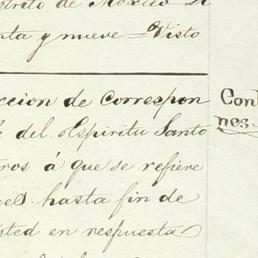 trito de Mexico
ta y nueve = Visto
ccion de Correspon
del Espiritu Santo
ros á que se refiere
hasta fin de
sted en respuesta
Con
nes